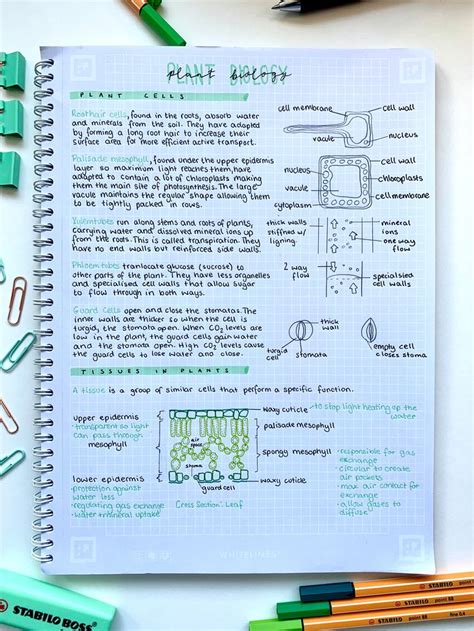 PLANT BIOLOGY
plant biology
PLANT CELLS
Root hair cells, found in the roots, absorb water
and minerals from the soil. They have adapted
by forming a long root hair to increase their
surface area for more efficient active transport.
cell membrane
cell wall
vacule
nucleus
Palisade mesophyll, found under the upper epidermis
layer so maximum light reaches them, have
adapted to contain a lot of chloroplasts making
them the main site of photosynthesis. The large
vacule maintains the regular shape allowing them
to be tightly packed in rows.
cell wall
nucleus
chloroplasts
vacule
cell membrane
cytoplasm
Xylem tubes run along stems and roots of plants,
carrying water and dissolved mineral ions up
from the roots. This is called transpiration. They
have no end walls but reinforced side walls.
thick walls
stiffned w/
ligning
mineral
ions
one way
flow
Phloem tubes tranlocate glucose (sucrose) to
other parts of the plant. They have less organelles
and specialised cell walls that allow sugar
to flow through in both ways.
2 way
flow
specialised
cell walls
Guard cells open and close the stomatas. The
inner walls are thicker so when the cell is
turgid, the stomata open. When CO2 levels are
low in the plant, the guard cells gain water
and the stomata open. High CO2 levels cause
the guard cells to lose water and close.
thick
wall
turgid
cell
stomata
empty cell
closes stoma
TISSUES IN PLANTS
A tissue is a group of similar cells that perform a specific function.
upper epidermis
-transparent so light
can pass through
mesophyll
waxy cuticle
-to stop light heating up the
water
palisade mesophyll
air
space
spongy mesophyll
-responsible for gas
exchange
-circular to create
air pockets
-max air contact for
exchange
-allow gases to
diffuse
stoma
lower epidermis
-protection against
water loss
-regulating gas exchange
-water + mineral uptake
guard cell
waxy cuticle
Cross Section: Leaf
WHITELINES
STABILO BOSS
STABILO point 88
STABILO point 88